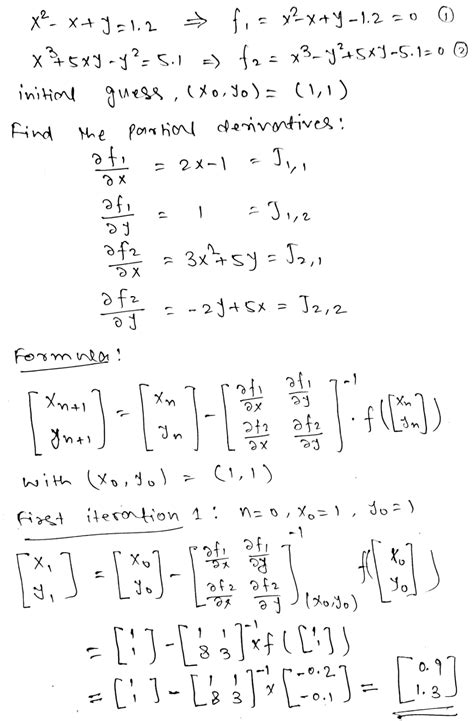 x²- x + y = 1.2 ⇒ f₁ = x²-x+y-1.2 = 0 ①
x³+5xy-y² = 5.1 ⇒ f₂ = x³-y²+5xy-5.1=0 ②
initial guess, (x₀,y₀) = (1,1)
Find the partial derivatives:
∂f₁/∂x = 2x-1 = J₁,₁
∂f₁/∂y = 1 = J₁,₂
∂f₂/∂x = 3x²+5y = J₂,₁
∂f₂/∂y = -2y+5x = J₂,₂
Formula:
[xₙ₊₁ yₙ₊₁] = [xₙ yₙ] - [∂f₁/∂x ∂f₁/∂y ∂f₂/∂x ∂f₂/∂y]⁻¹ · f([xₙ yₙ])
with (x₀,y₀) = (1,1)
First iteration 1: n=0, x₀=1, y₀=1
[x₁ y₁] = [x₀ y₀] - [∂f₁/∂x ∂f₁/∂y ∂f₂/∂x ∂f₂/∂y]⁻¹(x₀,y₀) f([x₀ y₀])
= [1 1] - [1 1 8 3]⁻¹ x f([1 1])
= [1 1] - [1 1 8 3]⁻¹ x [-0.2 -0.1] = [0.9 1.3]